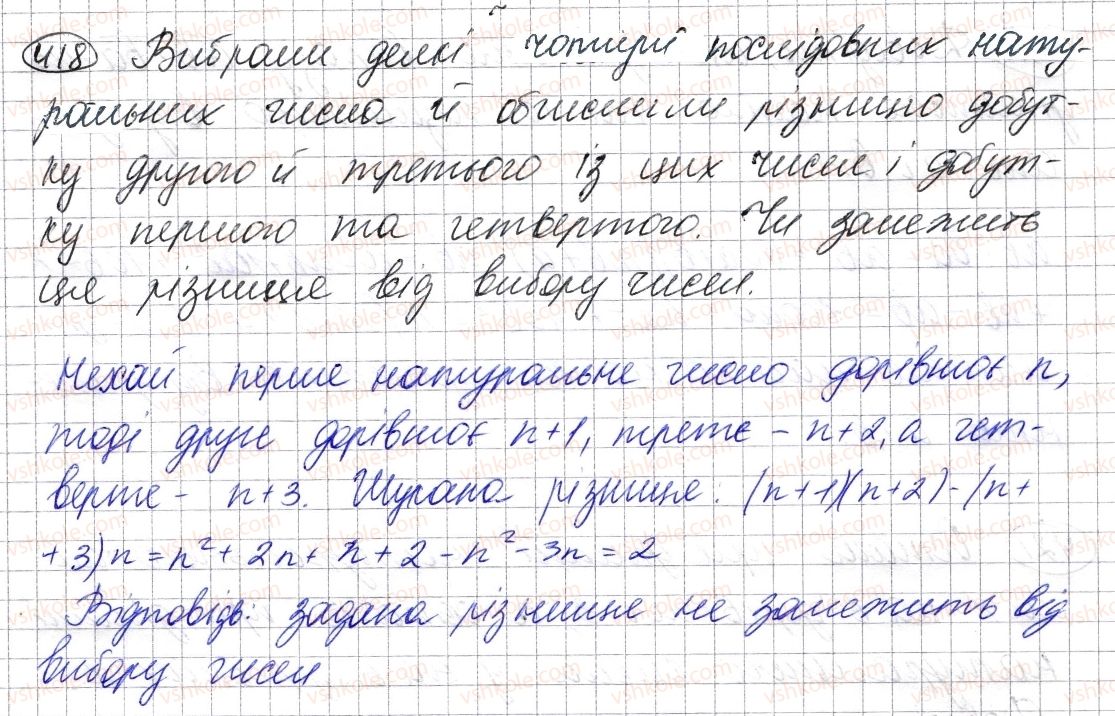 418 Вибрали деякі чотири послідовних нату-
ральних числа й обчислили різницю добут-
ку другого й третього із цих чисел і добут-
ку першого та четвертого. Чи залежить
ця різниця від вибору чисел.
Нехай перше натуральне число дорівнює n,
тоді друге дорівнює n+1, третє - n+2, а чет-
верте - n+3. Шукана різниця: (n+1)(n+2)-(n+
+3)n = n²+2n+n+2-n²-3n=2
Відповідь: задана різниця не залежить від
вибору чисел